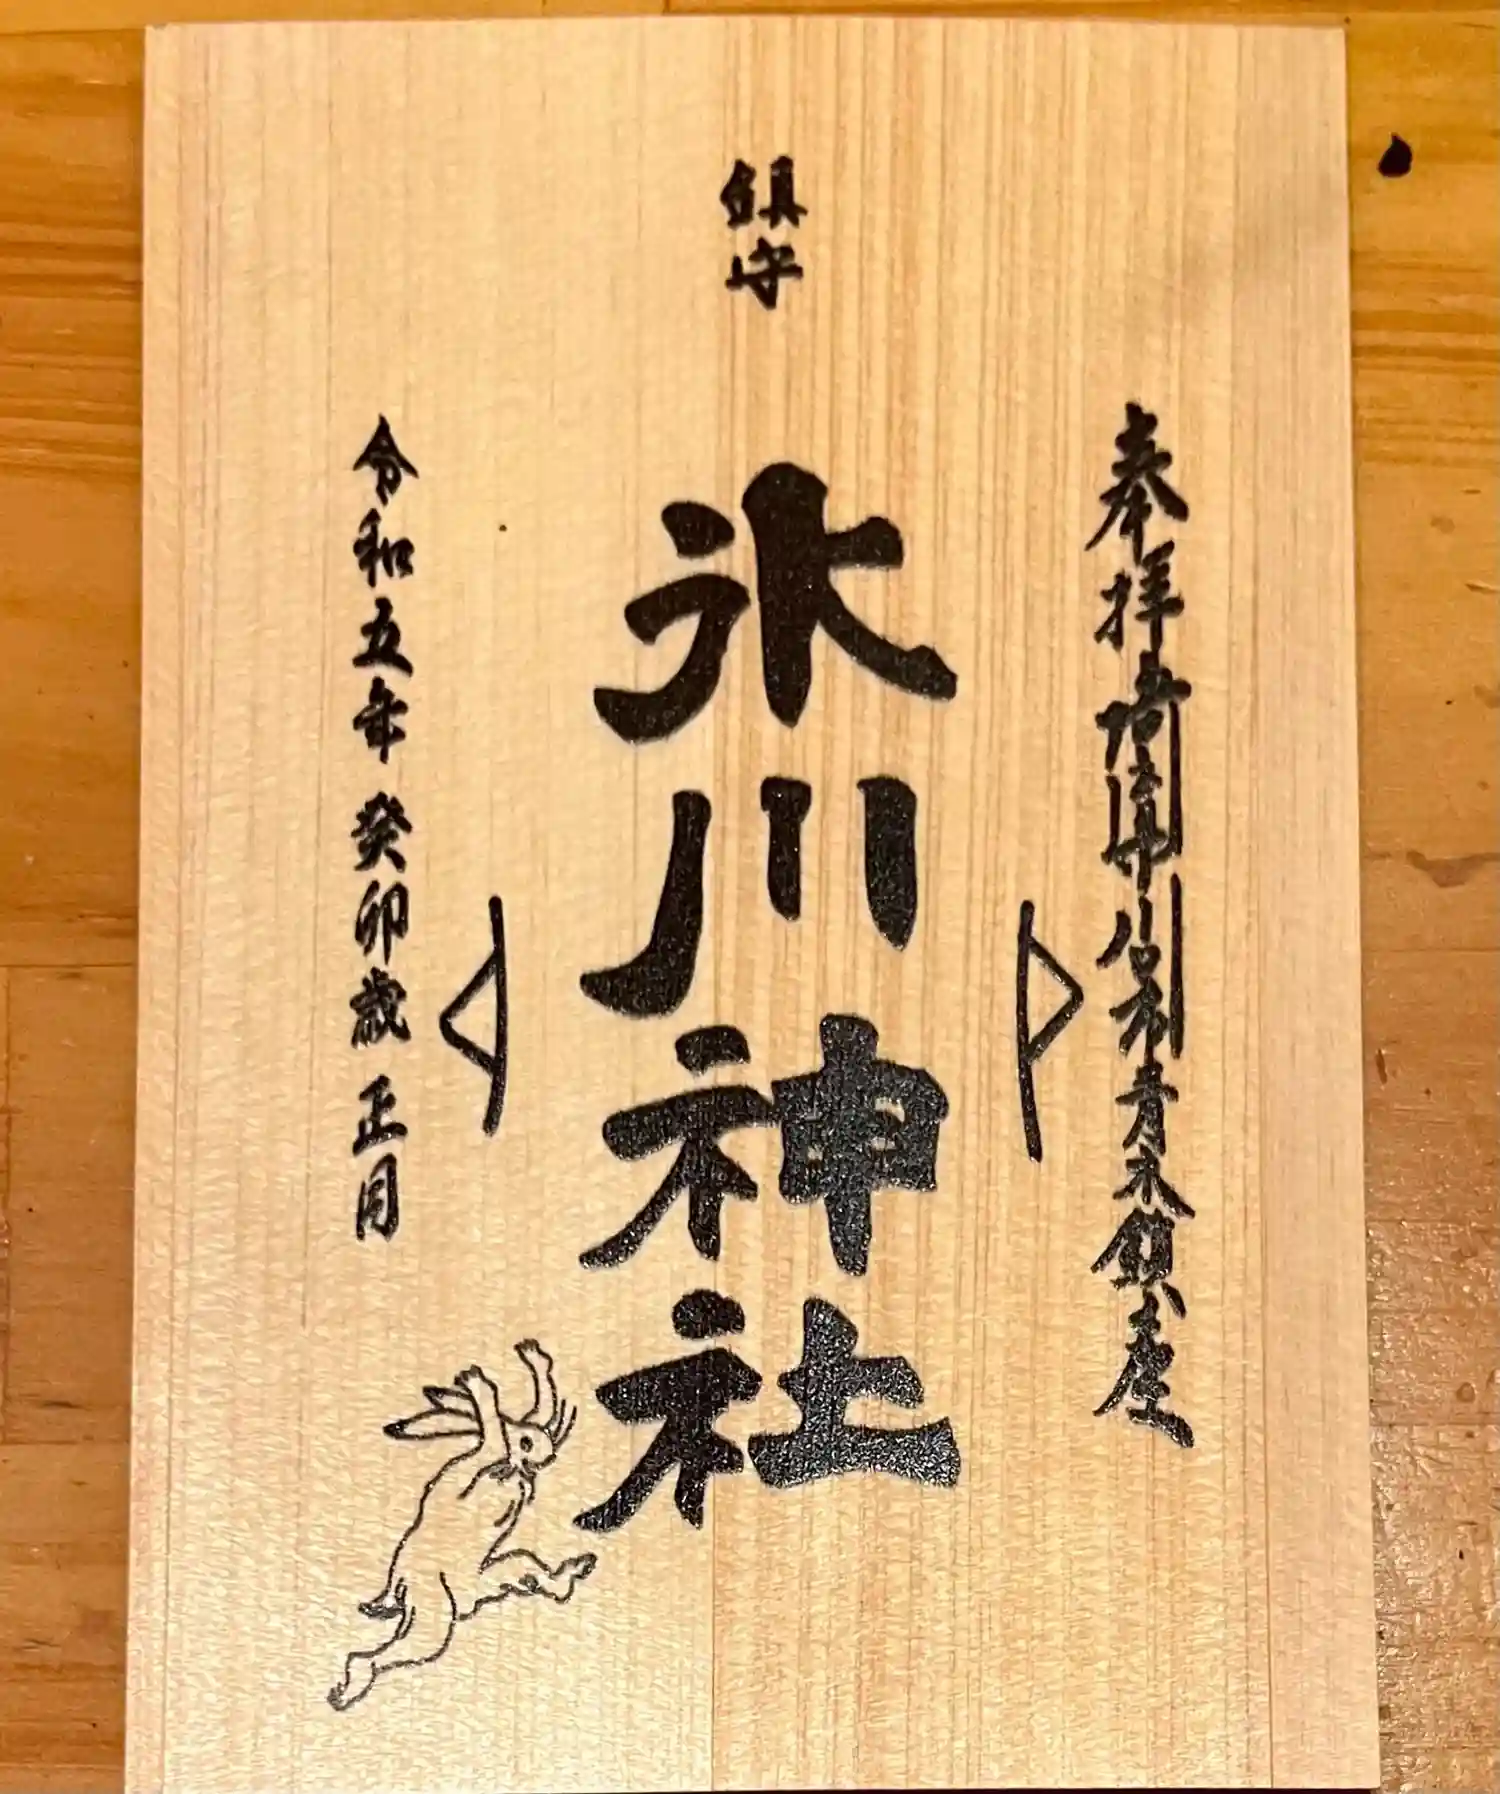 奉拝 埼玉県川口市青木鎮座
鎮守
氷川神社
令和五年 癸卯歳 正月